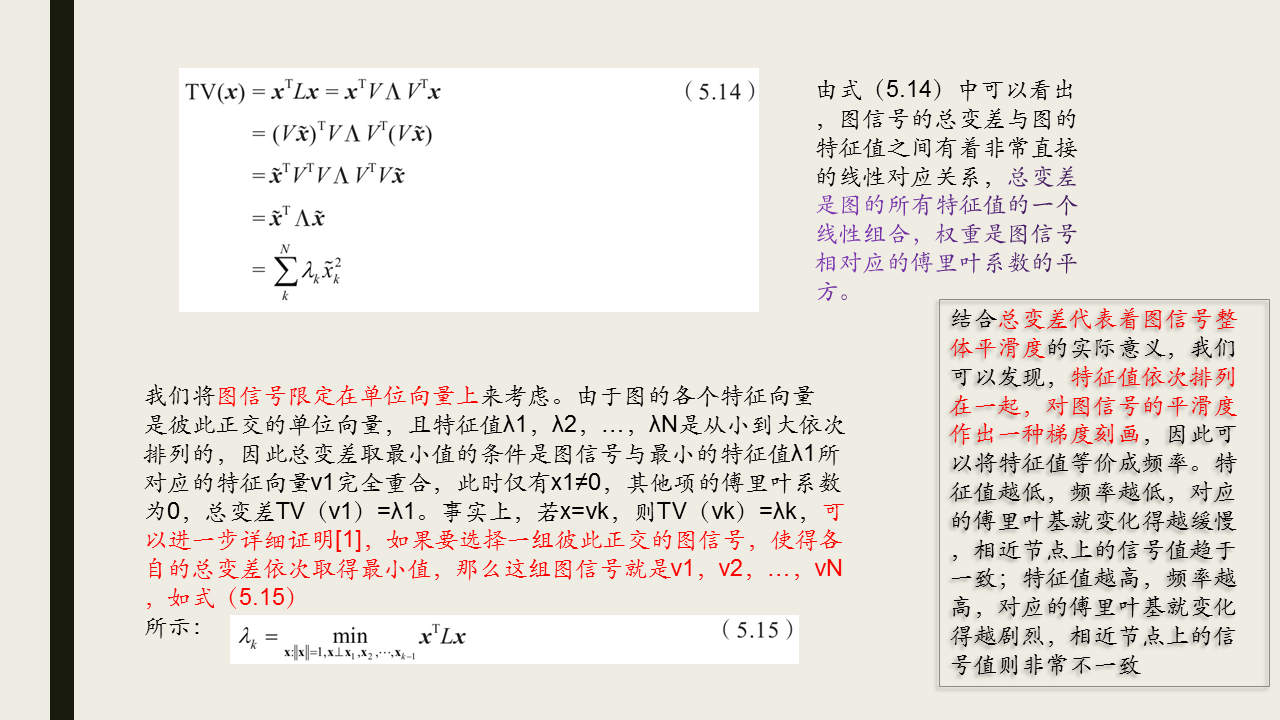 TV(x) = xᵀLx = xᵀVΛVᵀx （5.14）
= (Vx̃)ᵀVΛVᵀ(Vx̃)
= x̃ᵀVᵀVΛVᵀVx̃
= x̃ᵀΛx̃
= ∑ₖᴺ λₖx̃ₖ²
由式（5.14）中可以看出
，图信号的总变差与图的
特征值之间有着非常直接
的线性对应关系，总变差
是图的所有特征值的一个
线性组合，权重是图信号
相对应的傅里叶系数的平
方。
结合总变差代表着图信号整
体平滑度的实际意义，我们
可以发现，特征值依次排列
在一起，对图信号的平滑度
作出一种梯度刻画，因此可
以将特征值等价成频率。特
征值越低，频率越低，对应
的傅里叶基就变化得越缓慢
，相近节点上的信号值趋于
一致；特征值越高，频率越
高，对应的傅里叶基就变化
得越剧烈，相近节点上的信
号值则非常不一致
我们将图信号限定在单位向量上来考虑。由于图的各个特征向量
是彼此正交的单位向量，且特征值λ1，λ2，…，λN是从小到大依次
排列的，因此总变差取最小值的条件是图信号与最小的特征值λ1所
对应的特征向量v1完全重合，此时仅有x1≠0，其他项的傅里叶系数
为0，总变差TV（v1）=λ1。事实上，若x=vk，则TV（vk）=λk，可
以进一步详细证明[1]，如果要选择一组彼此正交的图信号，使得各
自的总变差依次取得最小值，那么这组图信号就是v1，v2，…，vN
，如式（5.15）
所示：
λₖ = min x:‖x‖=1,x⊥x₁,x₂,⋯,xₖ₋₁ xᵀLx （5.15）